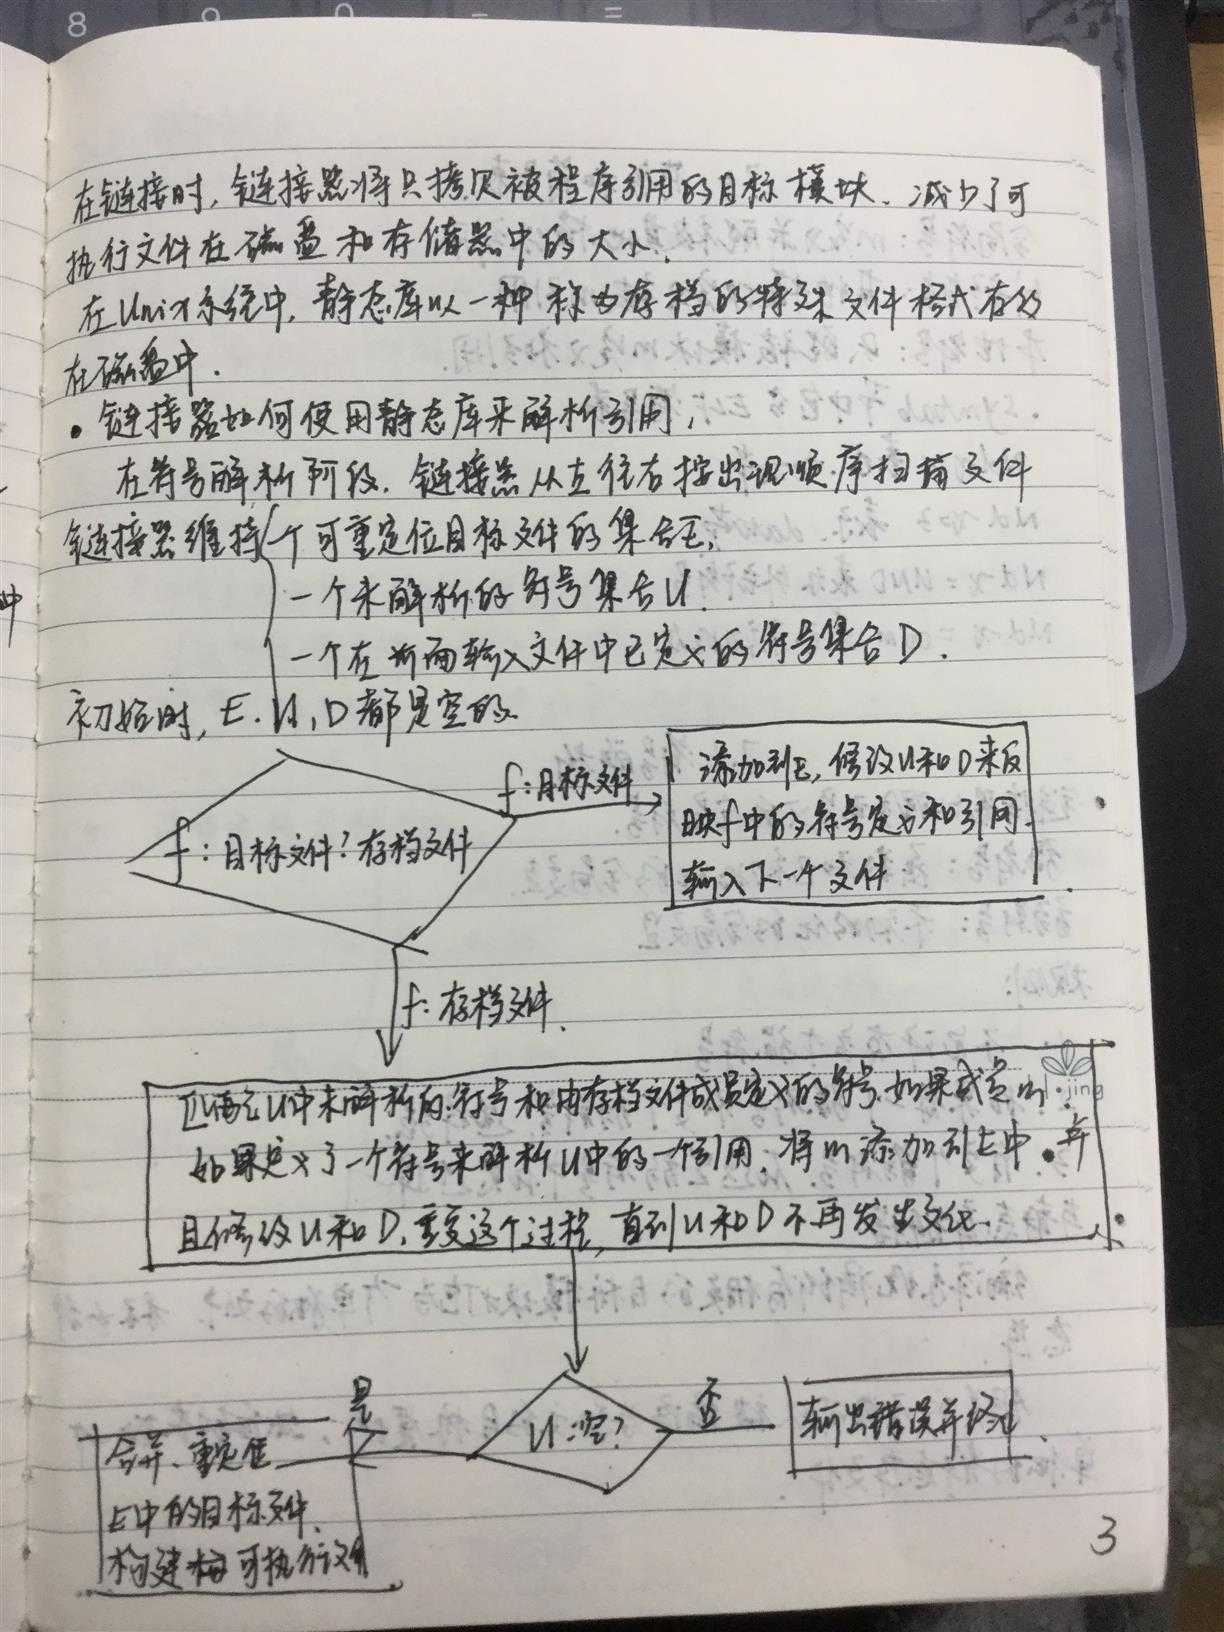 8 9 0 - =
在链接时,链接器将只拷贝被程序引用的目标模块、减少了可
执行文件在磁盘和存储器中的大小.
在Unix系统中,静态库以一种称为存档的特殊文件格式存放
在磁盘中.
• 链接器如何使用静态库来解析引用,
在符号解析阶段,链接器从左往右按出现顺序扫描文件
链接器维持 一个可重定位目标文件的集合E,
一个未解析的符号集合U.
一个在前面输入文件中已定义的符号集合D.
初始时, E、U、D都是空的.
f:目标文件
添加到E,修改U和D来反
映f中的符号定义和引用.
输入下一个文件
f:目标文件?存档文件
f:存档文件.
匹配U中未解析的符号和由存档文件成员定义的符号.如果成员m.
如果定义了一个符号来解析U中的一个引用,将m添加到E中.并
且修改U和D.重复这个过程,直到U和D不再发生变化.
jing
是
U:空?
否
输出错误并终止.
合并、重定位
E中的目标文件、
构建 可执行文件
3